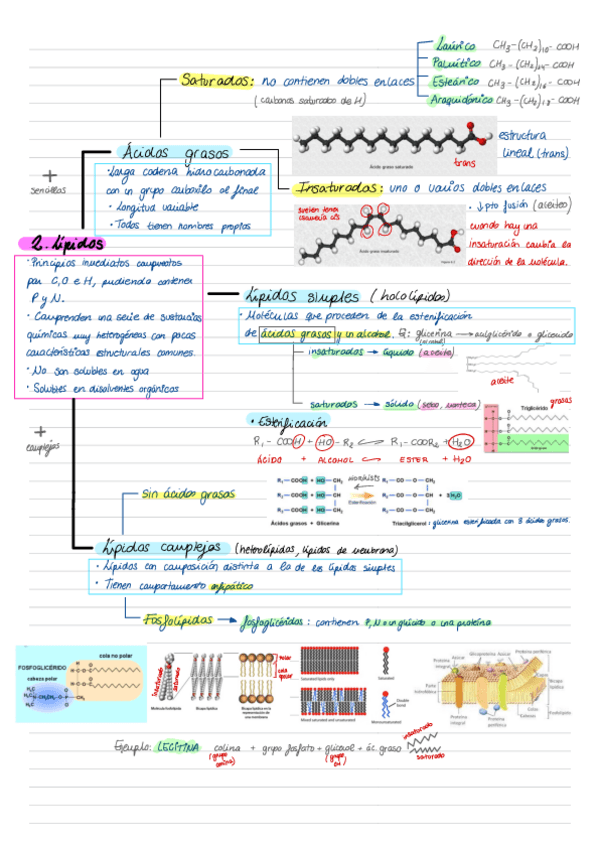 Laúrico CH3-(CH2)10-COOH
Palmítico CH3-(CH2)14-COOH
Esteárico CH3-(CH2)16-COOH
Araquidónico CH3-(CH2)18-COOH
Saturados: no contienen dobles enlaces
(carbonos saturados de H)
Ácidos grasos
·Larga cadena hidrocarbonada
con un grupo carboxilo al final
· Longitud variable
· Todos tienen nombres propios
+
sencillos
Ácido graso saturado
trans
estructura
lineal (trans)
Insaturados: uno o varios dobles enlaces
suelen tener
esquema cis
Ácido graso insaturado
· ↓pto fusión (aceites)
cuando hay una
insaturación cambia la
dirección de la molécula.
2. Lípidos
· Principios inmediatos compuestos
por C, O e H, pudiendo contener
P y N.
· Comprenden una serie de sustancias
químicas muy heterogéneas con pocas
características estructurales comunes.
· No son solubles en agua
· Solubles en disolventes orgánicos
Lípidos simples (hololípidos)
· Moléculas que proceden de la esterificación
de ácidos grasos y un alcohol. Ej: glicerina → acilglicérido o glicerido
insaturados → líquido (aceite)
aceite
saturados → sólido (sebo, manteca)
grasas
Triglicérido
+
complejos
· Esterificación
R1 - COOH + HO - R2 ↔ R1 - COOR2 + H2O
ÁCIDO + ALCOHOL ↔ ESTER + H2O
Sin ácidos grasos
R1-COOH + HO-CH2
R2-COOH + HO-CH
R3-COOH + HO-CH2
Hidrólisis
Esterificación
R1-CO-O-CH2
R2-CO-O-CH + 3H2O
R3-CO-O-CH2
Ácidos grasos + Glicerina
Triacilglicerol: glicerina esterificada con 3 ácidos grasos.
Lípidos complejos (hetrolípidos, lípidos de membrana)
· Lípidos con composición distinta a la de los lípidos simples
· Tienen comportamiento anfipático
Fosfolípidos → fosfoglicéridos: contienen P, N o un glúcido o una proteína
cola no polar
FOSFOGLICÉRIDO
cabeza polar
insaturado
saturado
Bicapa lipídica
polar
cola
apolar
Saturated lipids only
Mixed saturated and unsaturated
Saturated
Double
bond
Monounsaturated
Proteína
integral
Proteína periférica
Bicapa
lipídica
Proteína
integral
Proteína
periférica
Colesterol
Fosfolípidos
Ejemplo: LECITINA colina + grupo fosfato + glicerol + ác. graso
(grupo
amino)
(grupo
OH)
insaturado
saturado